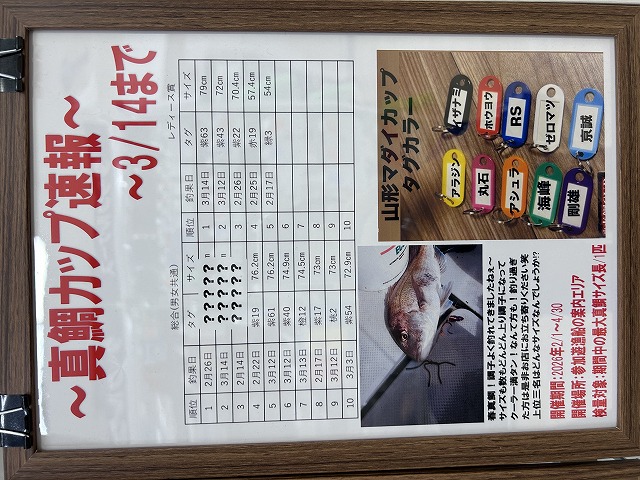 ～真鯛カップ速報～
～3/14まで
総合(男女共通)
順位 釣果日 タグ サイズ
1 2月26日 ????? ?????n
2 3月14日 ????? ?????n
3 3月14日 ????? ?????n
4 2月22日 紫19 76.2㎝
5 3月12日 紫61 76.2㎝
6 3月12日 紫40 74.9㎝
7 3月13日 橙12 74.5㎝
8 2月17日 紫17 73㎝
9 3月12日 桃2 73㎝
10 3月3日 紫54 72.9㎝
レディース賞
順位 釣果日 タグ サイズ
1 3月14日 紫63 79㎝
2 3月12日 紫43 72㎝
3 2月26日 紫22 70.4㎝
4 2月25日 赤19 57.4㎝
5 2月17日 緑3 54㎝
6
7
8
9
10
春真鯛！調子よく釣れてきましたねぇ～
サイズも数もどんどん上り調子になって
クーラー満タン！なんて方も！釣り過ぎ
た方は是非お店にお立ち寄りください笑
上位三名はどんなサイズなんでしょうか!?
開催期間:2026年2/1～4/30
開催場所:参加遊漁船の案内エリア
検量対象:期間中の最大真鯛サイズ長/1匹
山形マダイカップ
タグカラー
イザナミ
ホウヨウ
RS
ゼロマツ
京誠
アラジン
丸石
アシュラ
海峰
剛雄